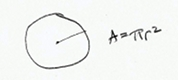 A=πr²